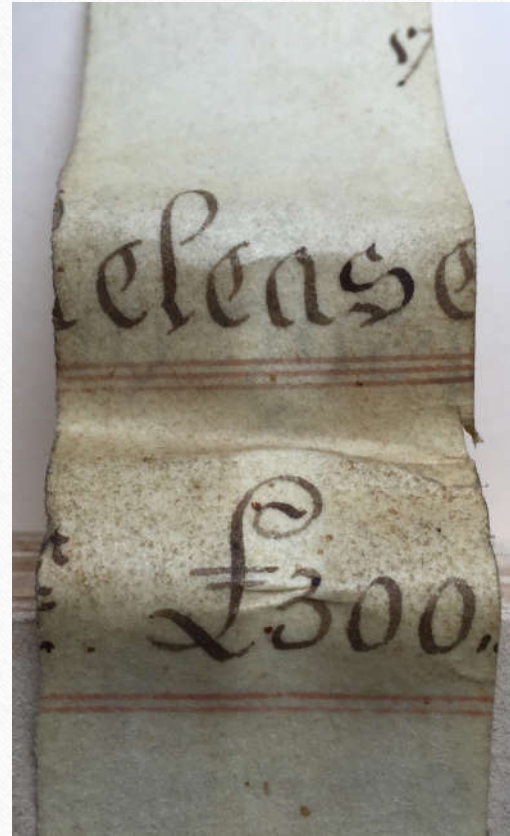 elease
£300